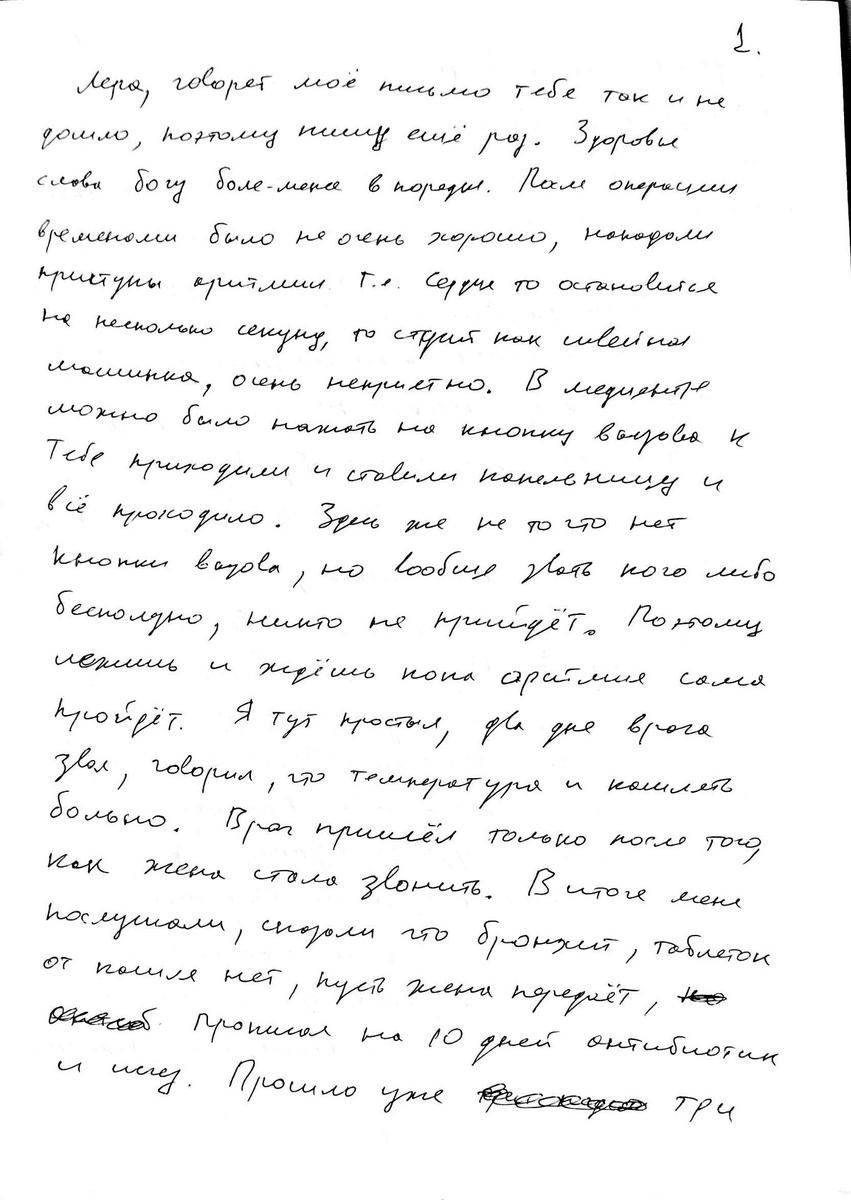 1.
Лера, говорят моё письмо тебе так и не
дошло, поэтому пишу ещё раз. Здоровье
слава богу боле-менее в порядке. После операции
временами было не очень хорошо, накатали
приступы аритмии т.е. сердце то остановится
на несколько секунд, то строчит как швейная
машинка, очень неприятно. В медцентре
можно было нажать на кнопку вызова к
Тебе приходили и ставили капельницу и
всё проходило. Здесь же не то что нет
кнопки вызова, но вообще звать кого либо
бесполезно, никто не прийдёт. Поэтому
лежишь и ждёшь пока аритмия сама
пройдёт. Я тут простыл, два дня врача
звал, говорил, что температура и кашлять
больно. Врач пришёл только после того,
как жена стала звонить. В итоге меня
послушали, сказали что бронхит, таблеток
от кашля нет, пусть жена передаёт,
прописал на 10 дней антибиотик
и исчез. Прошло уже три